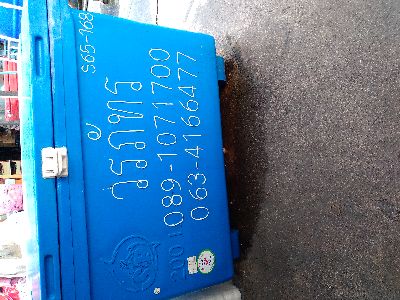 S65-168
วรภัทร
200L
089-1071700
063-4166477